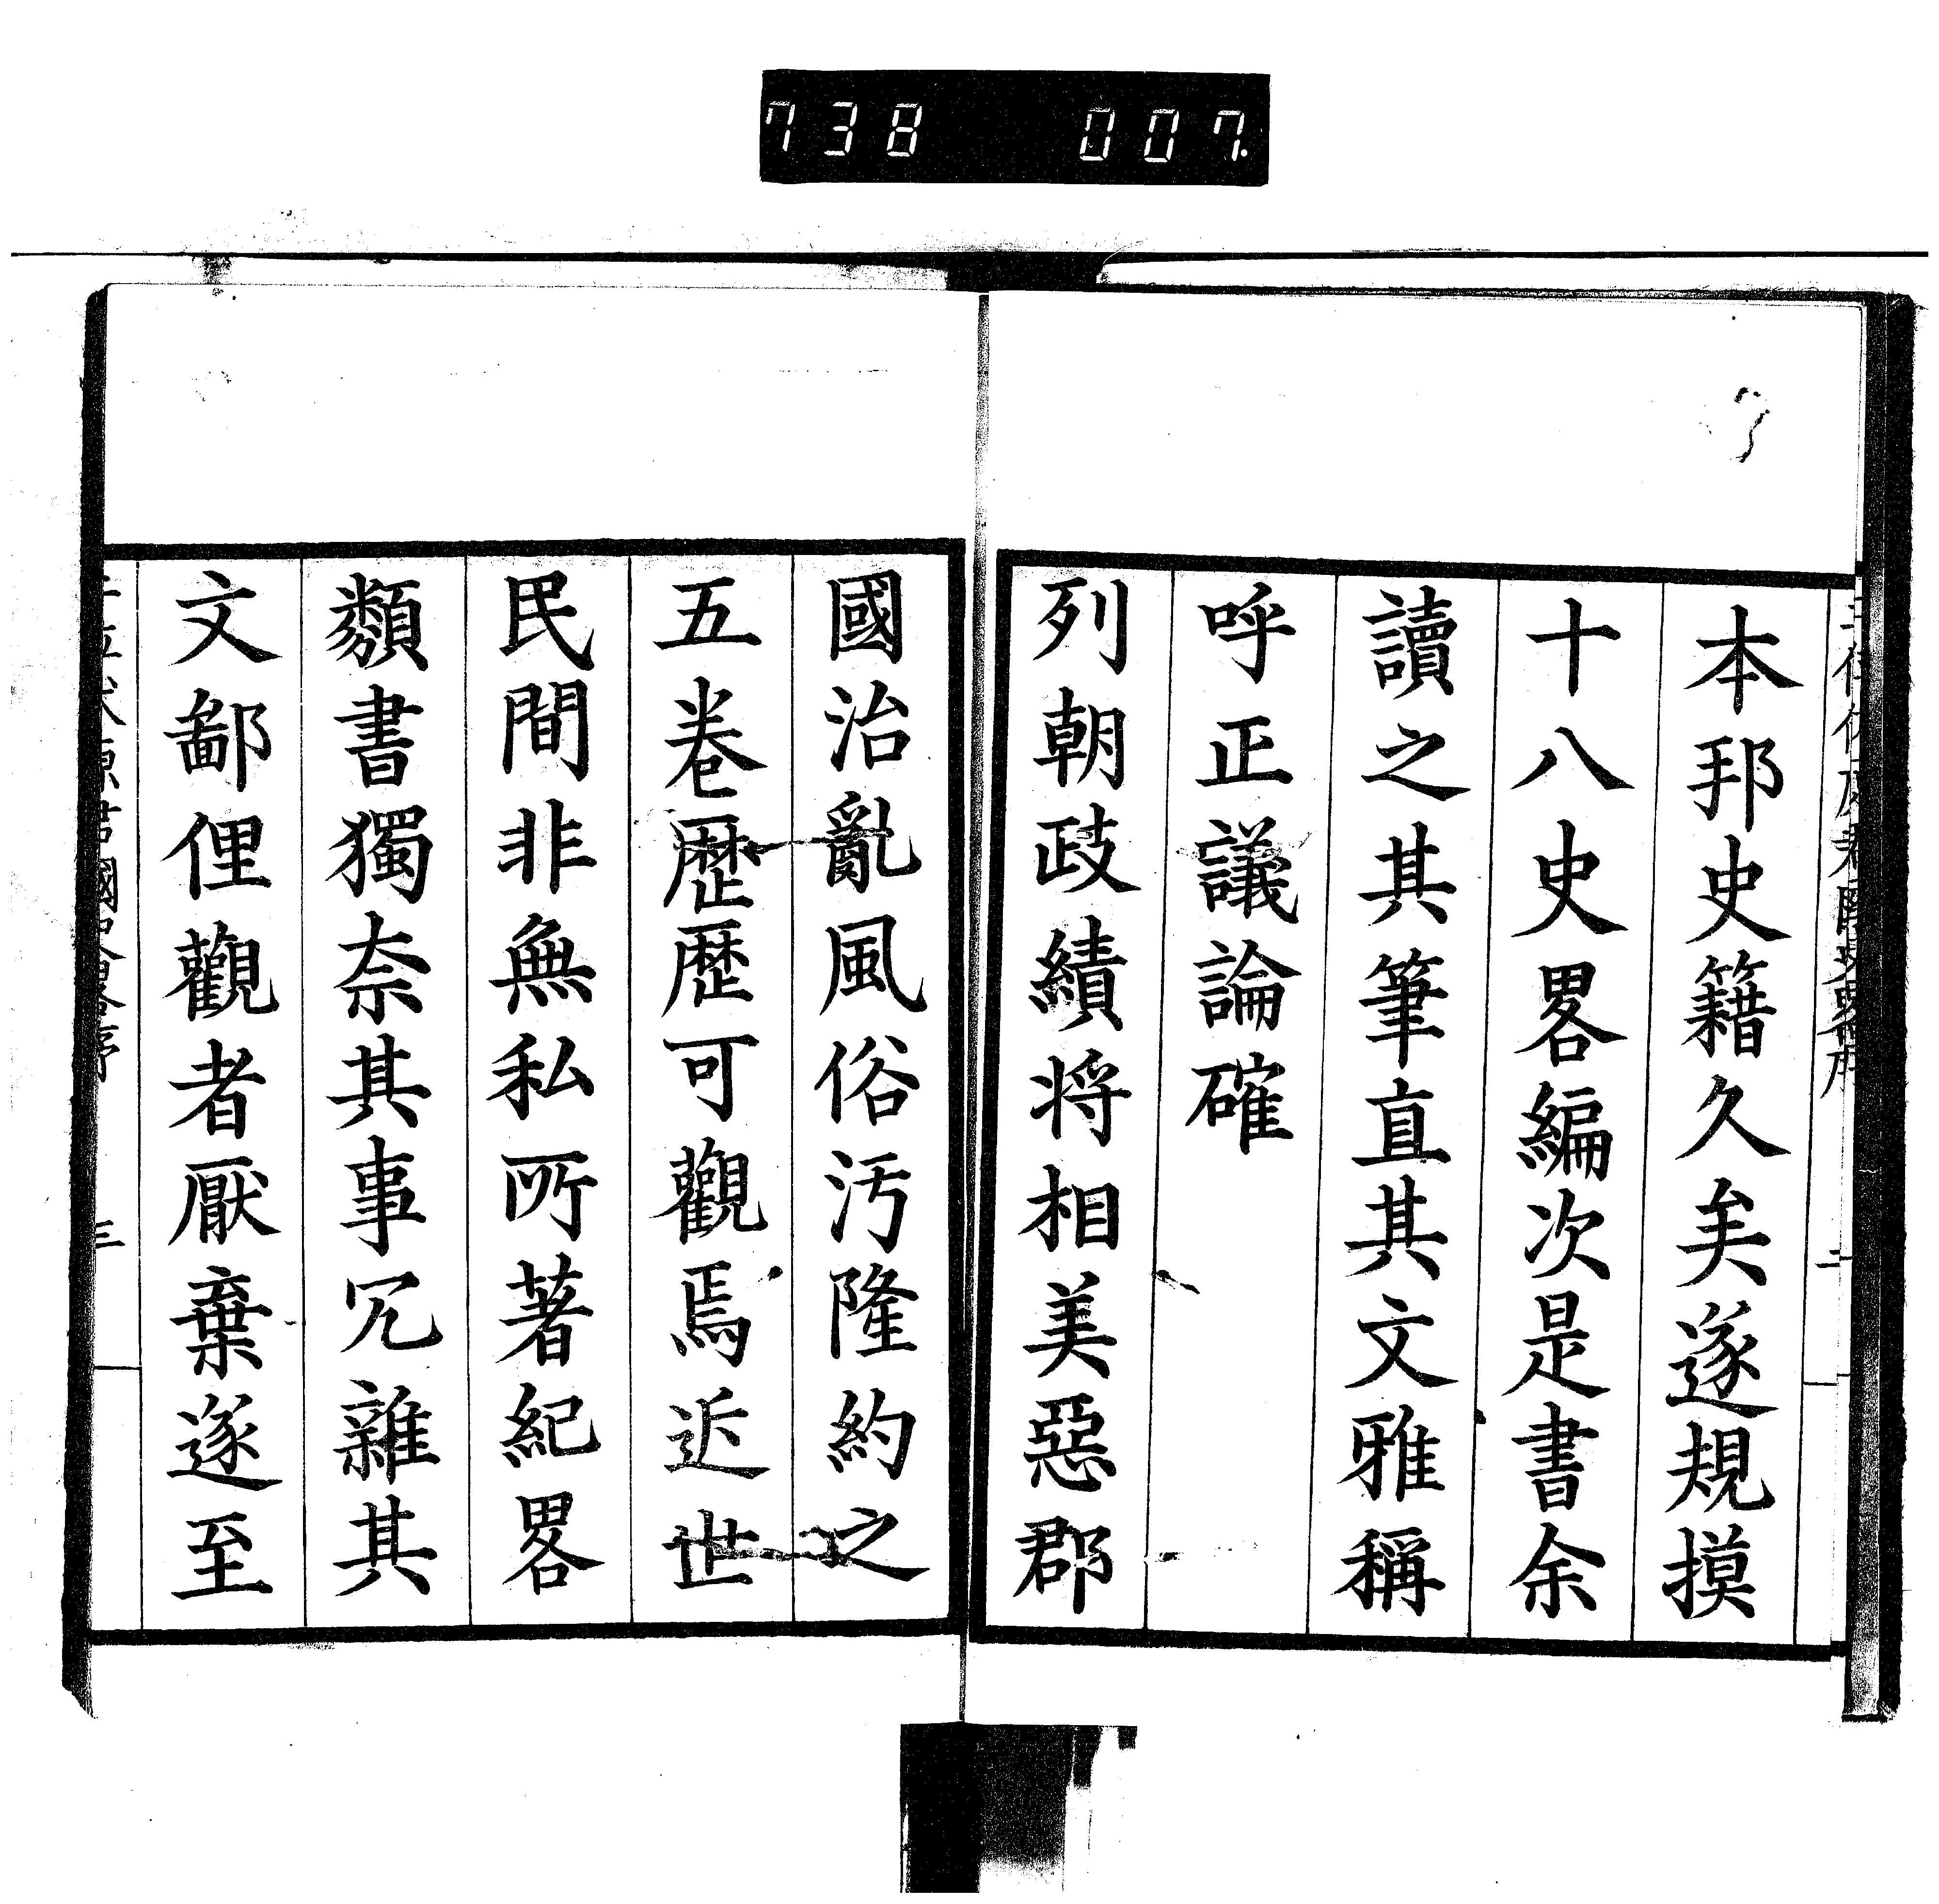 738 007
本邦史籍久矣遂規摸
十八史畧編次是書余
讀之其筆直其文雅稱
呼正議論確
列朝政績将相美惡郡
國治亂風俗汚隆約之
五卷歴歴可觀焉近世
民間非無私所著紀畧
類書獨奈其事冗雜其
文鄙俚觀者厭棄遂至
三